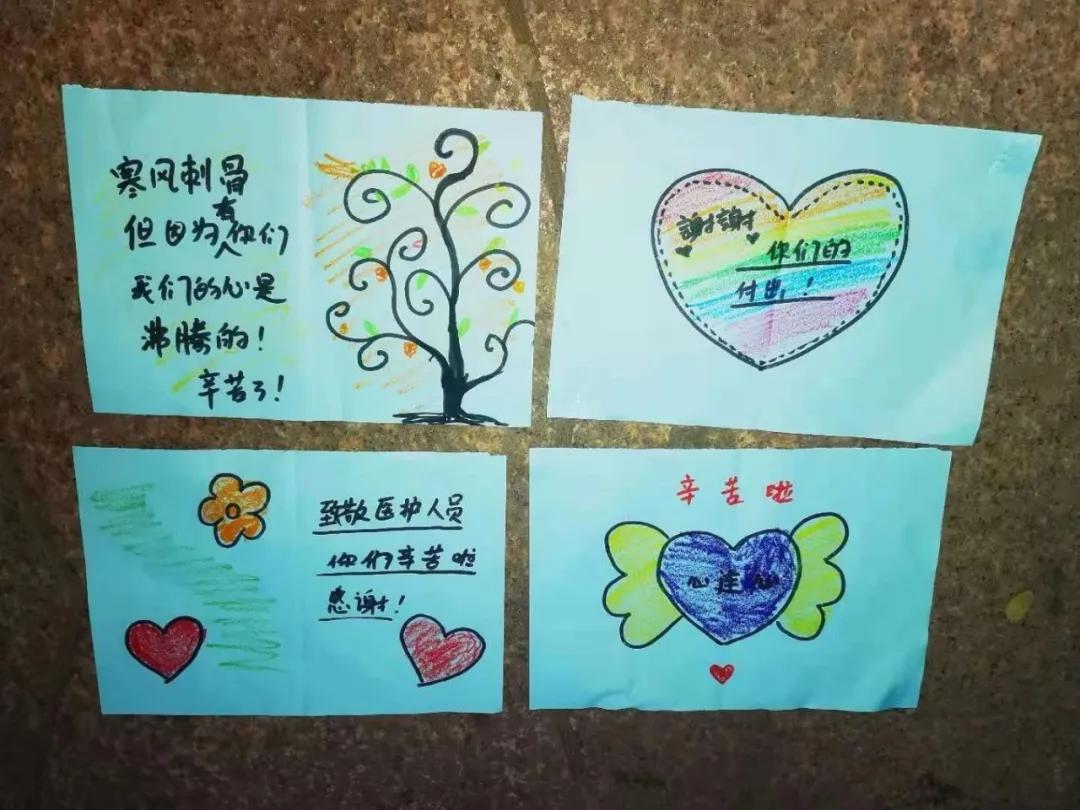 寒风刺骨
但因为有你们
我们的心是
沸腾的！
辛苦了！
謝謝
你们的
付出！
致敬医护人员
你们辛苦啦
感谢！
辛苦啦
心连心